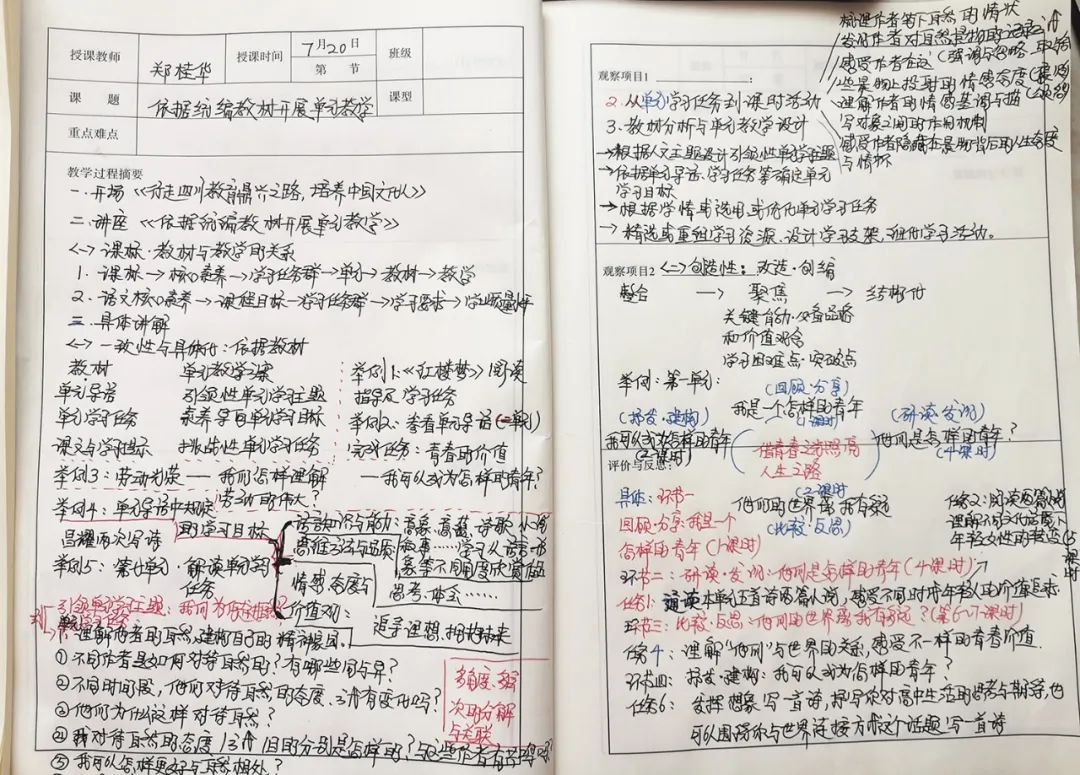 授课教师 郑桂华 授课时间 7月20日 第 节 班级
课题 依据统编教材开展单元教学 课型
重点难点
教学过程摘要
一.开场《行走四川教育鼎兴之路,培养中国文化人》
二.讲座《依据统编教材开展单元教学》
<一>课标·教材与教学的关系
1.课标→核心素养→学习任务群→单元→教材→教学
2.语文核心素养→课程目标→学习任务群→学习要求→学业质量水平
三.具体讲解
<一>一致性与具体化:依据教材
教材 单元教学方案 举例1:《红楼梦》阅读
单元导语 引领性单元学习主题 指导及学习任务
单元学习任务 素养导向单元学习目标 举例2:查看单元导语(一单元)
课文与学习提示 挑战性单元学习任务 完成任务:青春的价值
举例3:劳动光荣——我们怎样理解劳动的伟大? ——我可以成为怎样的青年?
举例4:单元导语中规定的学习目标
吕耀两次写诗
语言知识与能力:意象 意蕴 诗歌 小说
思维方法与品质
情感、态度与价值观:
思考·体会……
追寻理想,拥抱未来
举例5:第七单元·解读单元的任务
引领单元学习主题:我们为何
理解作者的自然,建构自己的精神家园。
①不同作者是如何对待自然的?有哪些同与异?
②不同时间段,他们对待自然的态度、方式有变化吗?
③他们为什么这样对待自然?
④我对待自然的态度、方式、目的分别是怎样的?与这些作者有
⑤我可以怎样更好与自然相处?
多角度、多层次的分解与关联
梳理作者笔下自然的情状
发现作者对自然景物的
感受作者在这
些景物上投射的情感态度
理解作者的情感基调与描
写对象之间的作用机制
感受作者隐藏在景物背后的人生态度
与情怀
观察项目1:
2.从单元学习任务到课时活动
3.教材分析与单元教学设计
→根据人文主题设计引领性单元学习主题
→依据单元导语、学习任务等确定单元
学习目标
→根据学情或选用或优化单元学习任务
→精选或重组学习资源、设计学习支架、细化学习活动。
观察项目2 <二>创造性:改造·创编
整合 → 聚焦 → 结构化
关键能力·必备品格
和价值观念
学习困难点·突破点
举例:第一单元:
(回顾·分享)
我是一个怎样的青年
(1课时)
(抒发·建构)
我可以成为怎样的青年
(2课时)
(研读·发现)
他们是怎样的青年?
(4课时)
借青春之火照亮
人生之路
评价与反思:
(2课时)
他们的世界离我有多远
(比较·反思)
具体:环节一
回顾·分享:我是一个
怎样的青年(1课时)
任务2:阅读两篇小说
理解不同文化背景下
年轻女性的
环节二:研读·发现:他们是怎样的青年(4课时)
任务1:诵读本单元五首诗两篇小说,感受不同时代年轻人的价值追求
环节三:比较·反思:他们的世界离我有多远?(第6-7课时)
任务4:理解“他们”与世界的关系,感受不一样的青春价值.
环节四:抒发·建构:我可以成为怎样的青年?
任务6:发挥想象,写一首诗,抒写你对高中生活的思考与期待,也
可以围绕你与世界连接方式这个话题写一首诗